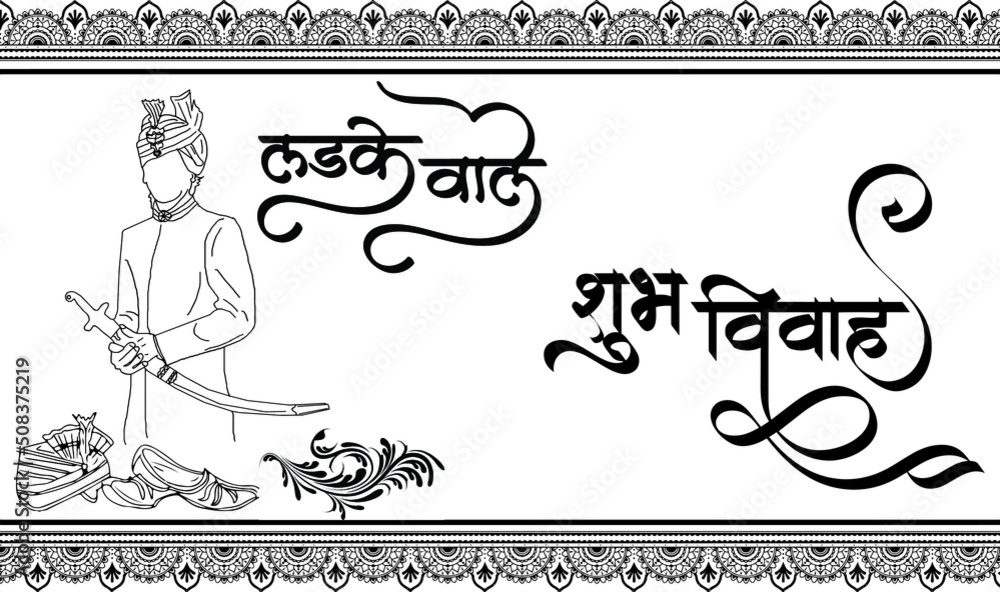 लडके वाले
शुभ विवाह
Adobe Stock | #508375219